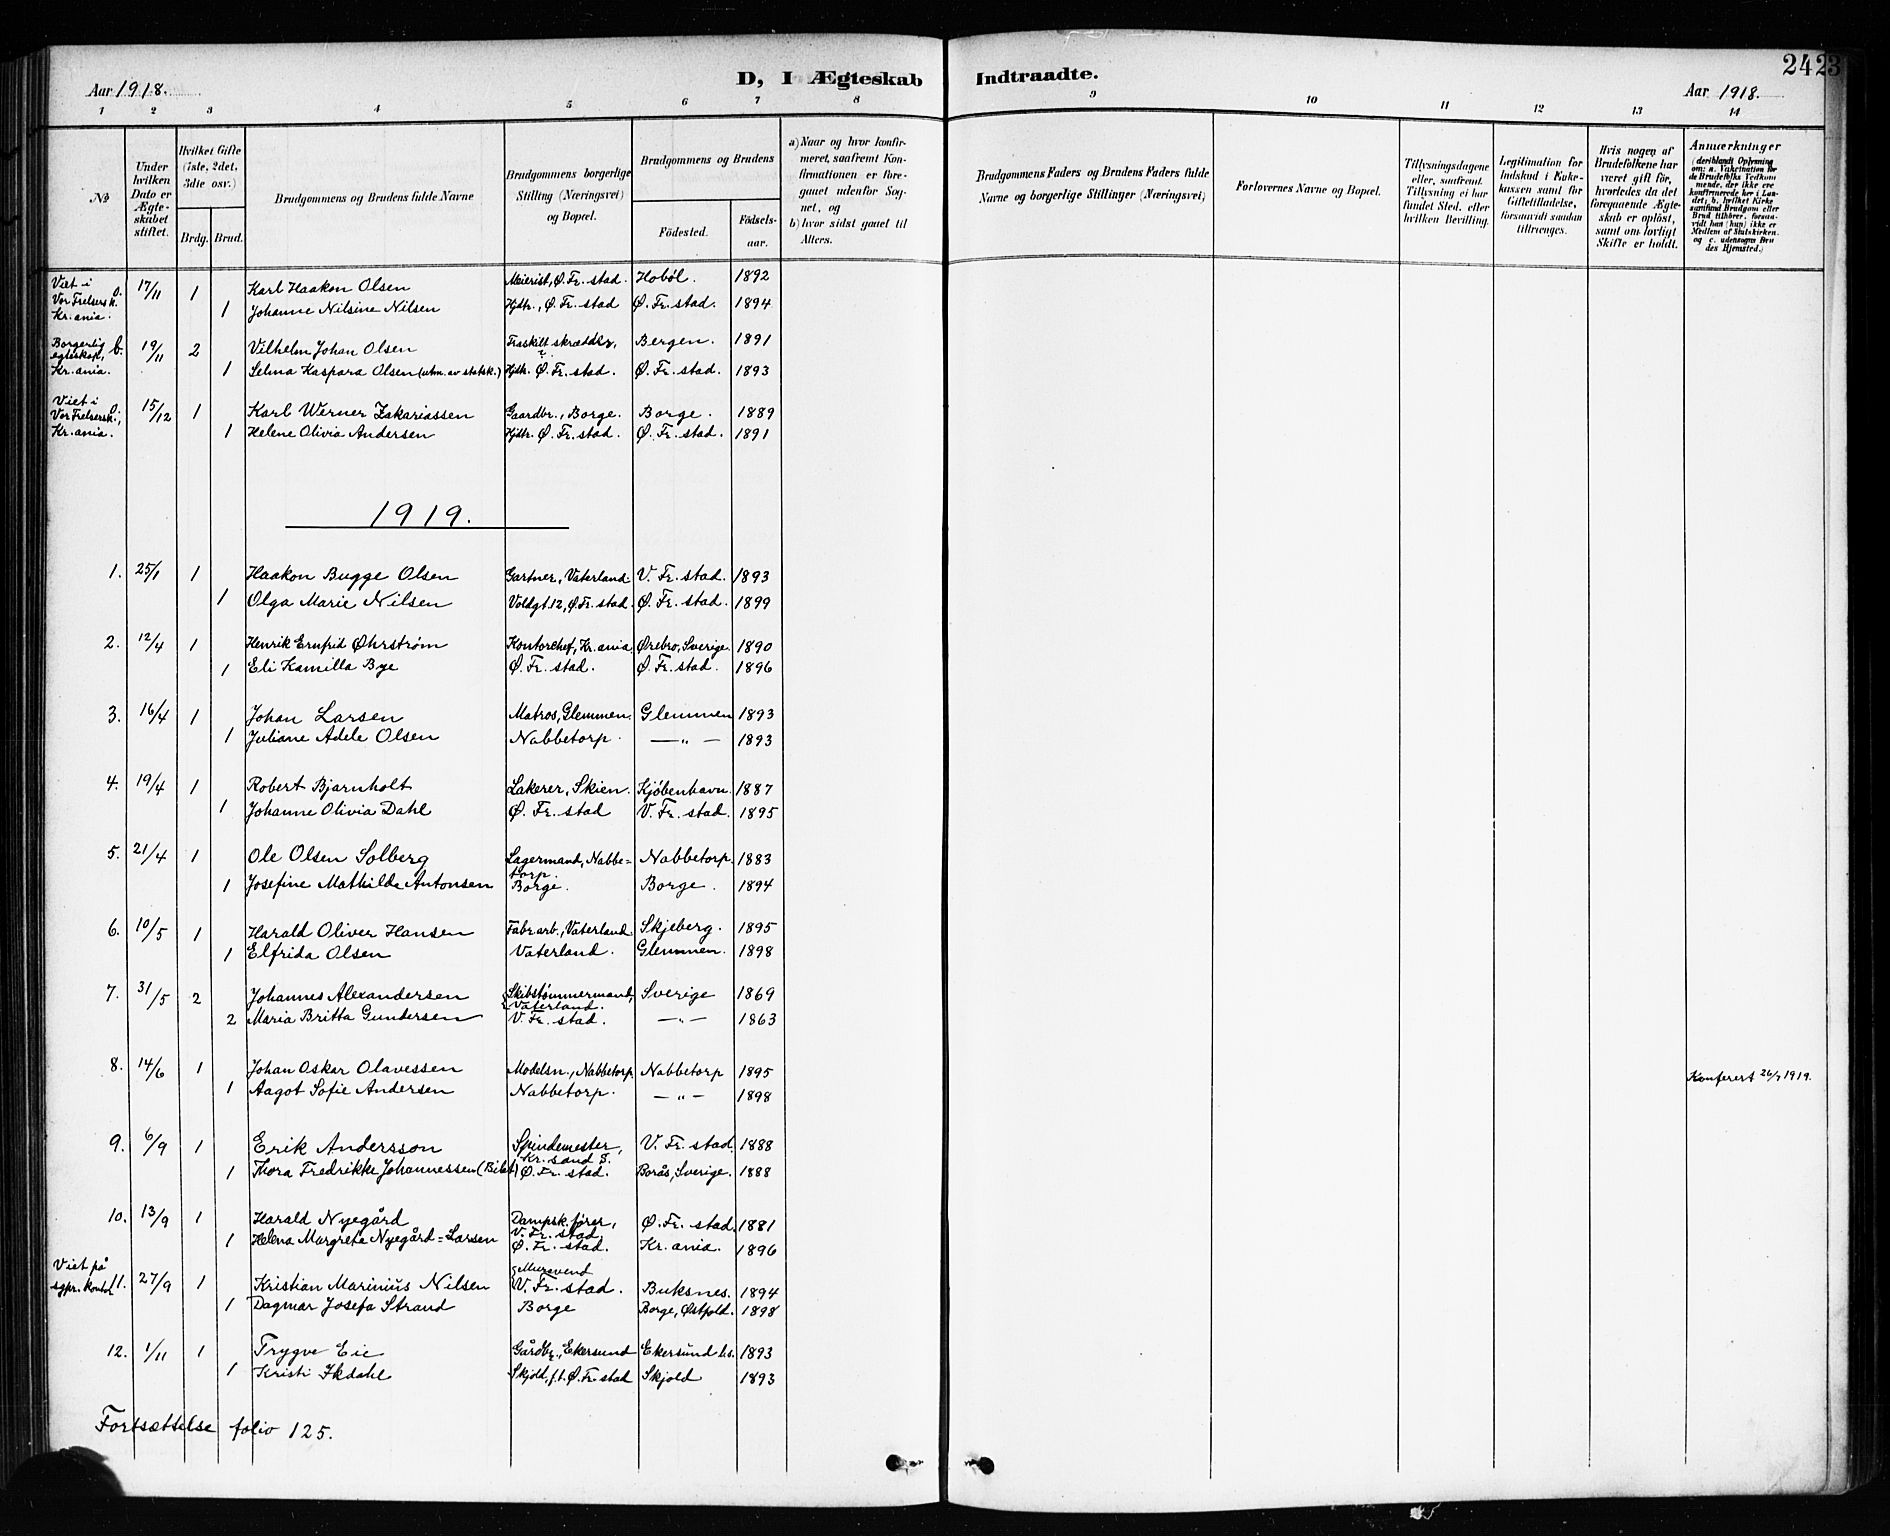 Aar 1918.
D, I Ægteskab Indtraadte.
2423
Aar 1918.
1 2 3 4 5 6 7 8 9 10 11 12 13 14
No
Under hvilken Dato er Ægteskabet stiftet.
Hvilket Gifte (1ste, 2det, 3die osv.)
Brdg. Brud.
Brudgommens og Brudens fulde Navne
Brudgommens borgerlige Stilling (Næringsvei) og Bopæl.
Brudgommens og Brudens
Födested. Födsels-aar.
a) Naar og hvor konfirmeret, saafremt Konfirmationen er foregaaet udenfor Sognet, og
b) hvor sidst gaaet til Alters.
Brudgommens Faders og Brudens Faders fulde Navne og borgerlige Stillinger (Næringsvei)
Forlovernes Navne og Bopæl.
Tillysningsdagene eller, saafremt Tillysning ei har fundet Sted, efter hvilken Bevilling.
Legitimation for Indskud i Enkekassen samt for Giftetilladelse, forsaavidt saadan tiltrænges.
Hvis nogen af Brudefolkene har været gift før, hvorledes da det foregaaende Ægteskab er opløst, samt om lovligt Skifte er holdt.
Anmærkninger
(deriblandt Oplysning om: a. Vakcination for de Brudefolks Vedkommende, der ikke ere konfirmerede her i Landet; b. hvilket Kirkesamfund Brudgom eller Brud tilhører, forsaavidt han (hun) ikke er Medlem af Statskirken, og c. udensogns Brudes Hjemsted.)
Viet i Vor Frelsersk. Kr.ania. 17/11 1 Karl Haakon Olsen Meierist, Ø. Fr.stad. Hobøl. 1892
1 Johanne Nilsine Nilsen Hjdtr., Ø. Fr.stad Ø. Fr.stad. 1894
Borgerlig egteskap, Kr.ania. b. 19/11 2 Vilhelm Johan Olsen Fraskilt skrædder, Bergen. 1891
1 Selma Kaspara Olsen (utm. av statsk.) Hjdtr. Ø. Fr.stad. Ø. Fr.stad. 1893
Viet i Vor Frelsersk.; Kr.ania. 15/12 1 Karl Werner Zakariassen Gaardbr., Borge. Borge. 1889
1 Helene Olivia Andersen Hjdtr. Ø. Fr.stad. Ø. Fr.stad. 1891
1919.
1. 25/1 1 Haakon Bugge Olsen Gartner, Vaterland. V. Fr.stad. 1893
1 Olga Marie Nilsen Voldgt. 12, Ø. Fr.stad. Ø. Fr.stad. 1899
2. 12/4 1 Henrik Ernfrid Øhrstrøm Kontorchef, Kr.ania. Ørebro, Sverige. 1890
1 Eli Kamilla Bye Ø. Fr.stad. Ø. Fr.stad. 1896
3. 16/4 1 Johan Larsen Matros, Glemmen. Glemmen 1893
1 Juliane Adele Olsen Nabbetorp. — „ — 1893
4. 19/4 1 Robert Bjarnholt Lakerer, Skien. Kjøbenhavn. 1887
1 Johanne Olivia Dahl Ø. Fr.stad V. Fr.stad. 1895
5. 21/4 1 Ole Olsen Solberg Lagermand, Nabbe= torp. Nabbetorp. 1883
1 Josefine Mathilde Antonsen Borge. Borge. 1894
6. 10/5 1 Harald Oliver Hansen Fabr.arb., Vaterland. Skjeberg. 1895
1 Elfrida Olsen Vaterland. Glemmen. 1898
7. 31/5 2 Johannes Alexandersen Skibstømmermand, Vaterland. Sverige 1869
2 Maria Britta Gundersen V. Fr.stad. — „ — 1863
8. 14/6 1 Johan Oskar Olavessen Modelsn., Nabbetorp. Nabbetorp 1895
Konferert 26/7 1919.
1 Aagot Sofie Andersen Nabbetorp. — „ — 1898
9. 6/9 1 Erik Andersson Spindemester, Kr.sand S. V. Fr.stad. 1888
1 Thora Fredrikke Johannessen (Bilet) Ø. Fr.stad. Borås, Sverige. 1888
10. 13/9 1 Harald Nyegård Dampsk.fører, V. Fr.stad. Ø. Fr.stad. 1881
1 Helena Margrete Nyegård=Larsen Ø. Fr.stad. Kr.ania. 1896
Viet på sgpr. kontor 11. 27/9 1 Kristian Marinius Nilsen Mursvend V. Fr.stad. Buksnes. 1894
1 Dagmar Josefa Strand Borge Borge, Østfold. 1898
12. 1/11 1 Trygve Eie Gårdbr., Ekersund Ekersund l.s. 1893
1 Kristi Ikdahl Skjold, f.t. Ø. Fr.stad Skjold 1893
Fortsættelse folio 125.